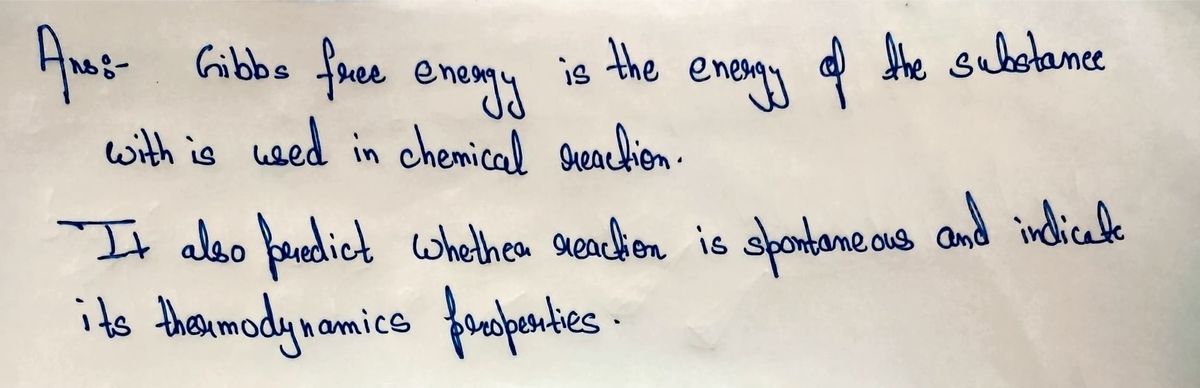 Ans:- Gibbs free energy is the energy of the substance
with is used in chemical reaction.
It also predict whether reaction is spontaneous and indicate
its thermodynamics properties.